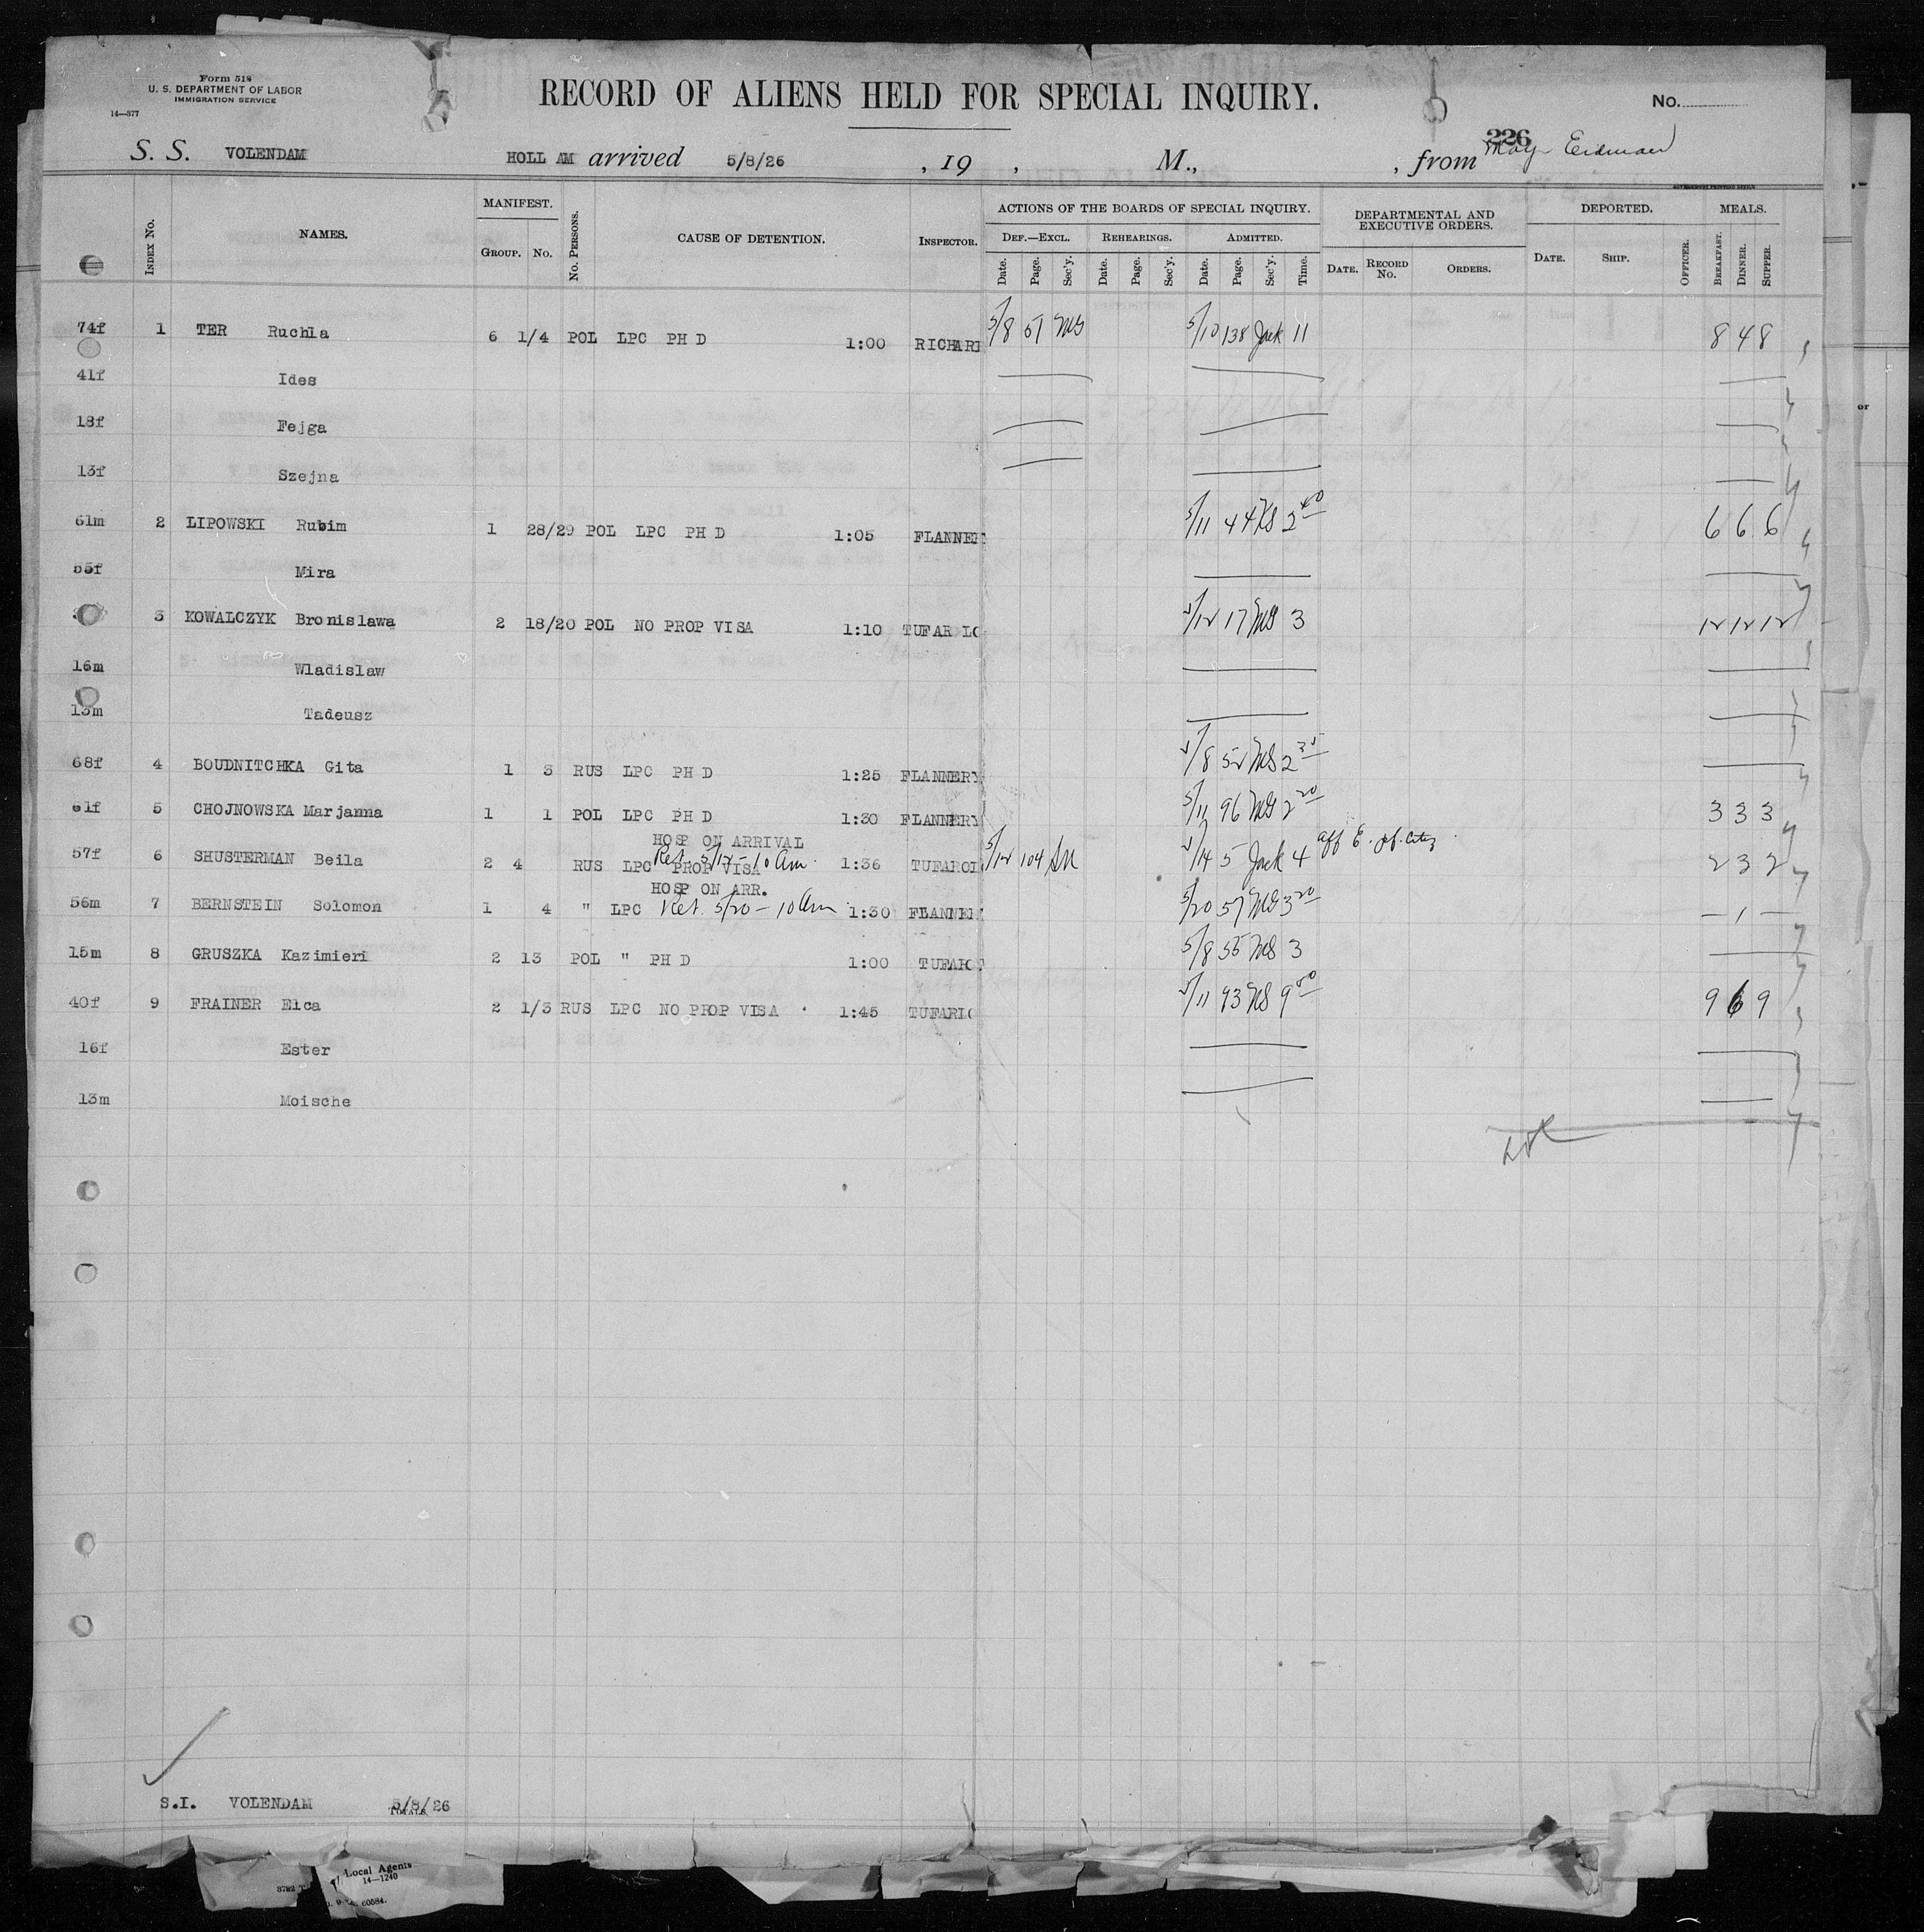 Form 518
U. S. DEPARTMENT OF LABOR
IMMIGRATION SERVICE
14—377
RECORD OF ALIENS HELD FOR SPECIAL INQUIRY.
No.
226
S. S. VOLENDAM HOLL AM arrived 5/8/26 , 19 , M., , from
INDEX No. NAMES. MANIFEST. GROUP. No. No. PERSONS. CAUSE OF DETENTION. INSPECTOR. ACTIONS OF THE BOARDS OF SPECIAL INQUIRY. DEF.—EXCL. Date. Page. Sec'y. REHEARINGS. Date. Page. Sec'y. ADMITTED. Date. Page. Sec'y. Time. DEPARTMENTAL AND EXECUTIVE ORDERS. DATE. RECORD No. ORDERS. DEPORTED. DATE. SHIP. OFFICER. MEALS. BREAKFAST. DINNER. SUPPER.
74f 1 TER Ruchla 6 1/4 POL LPC PH D 1:00 RICHARI 5/8 51 MS 5/10 138 Jack 11 8 4 8
41f Ides
18f Fejga
13f Szejna
61m 2 LIPOWSKI Rubim 1 28/29 POL LPC PH D 1:05 FLANNER 5/11 44 2 40 6 6 6
55f Mira
3 KOWALCZYK Bronislawa 2 18/20 POL NO PROP VISA 1:10 TUFAR LO 5/12 17 MS 3 12 12 12
16m Wladislaw
13m Tadeusz
68f 4 BOUDNITCHKA Gita 1 3 RUS LPC PH D 1:25 FLANNERY 5/8 52 MS 2 35
61f 5 CHOJNOWSKA Marjanna 1 1 POL LPC PH D 1:30 FLANNERY 5/11 96 MS 2 20 3 3 3
HOSP ON ARRIVAL
Ret. 5/12 - 10 am.
57f 6 SHUSTERMAN Beila 2 4 RUS LPC PROP VISA 1:36 TUFAROL 5/12 104 5/14 5 Jack 4 aff 2 3 2
HOSP ON ARR.
56m 7 BERNSTEIN Solomon 1 4 " LPC Ret. 5/20 - 10 am 1:30 FLANNER 5/20 57 MS 3 20 — 1 —
15m 8 GRUSZKA Kazimieri 2 13 POL " PH D 1:00 TUFARO 5/8 55 MS 3
40f 9 FRAINER Elca 2 1/3 RUS LPC NO PROP VISA 1:45 TUFARIO 5/11 93 9 9 6 9
16f Ester
13m Moische
S.I. VOLENDAM 5/8/26
TOTALS
Local Agents
14—1240
60584.